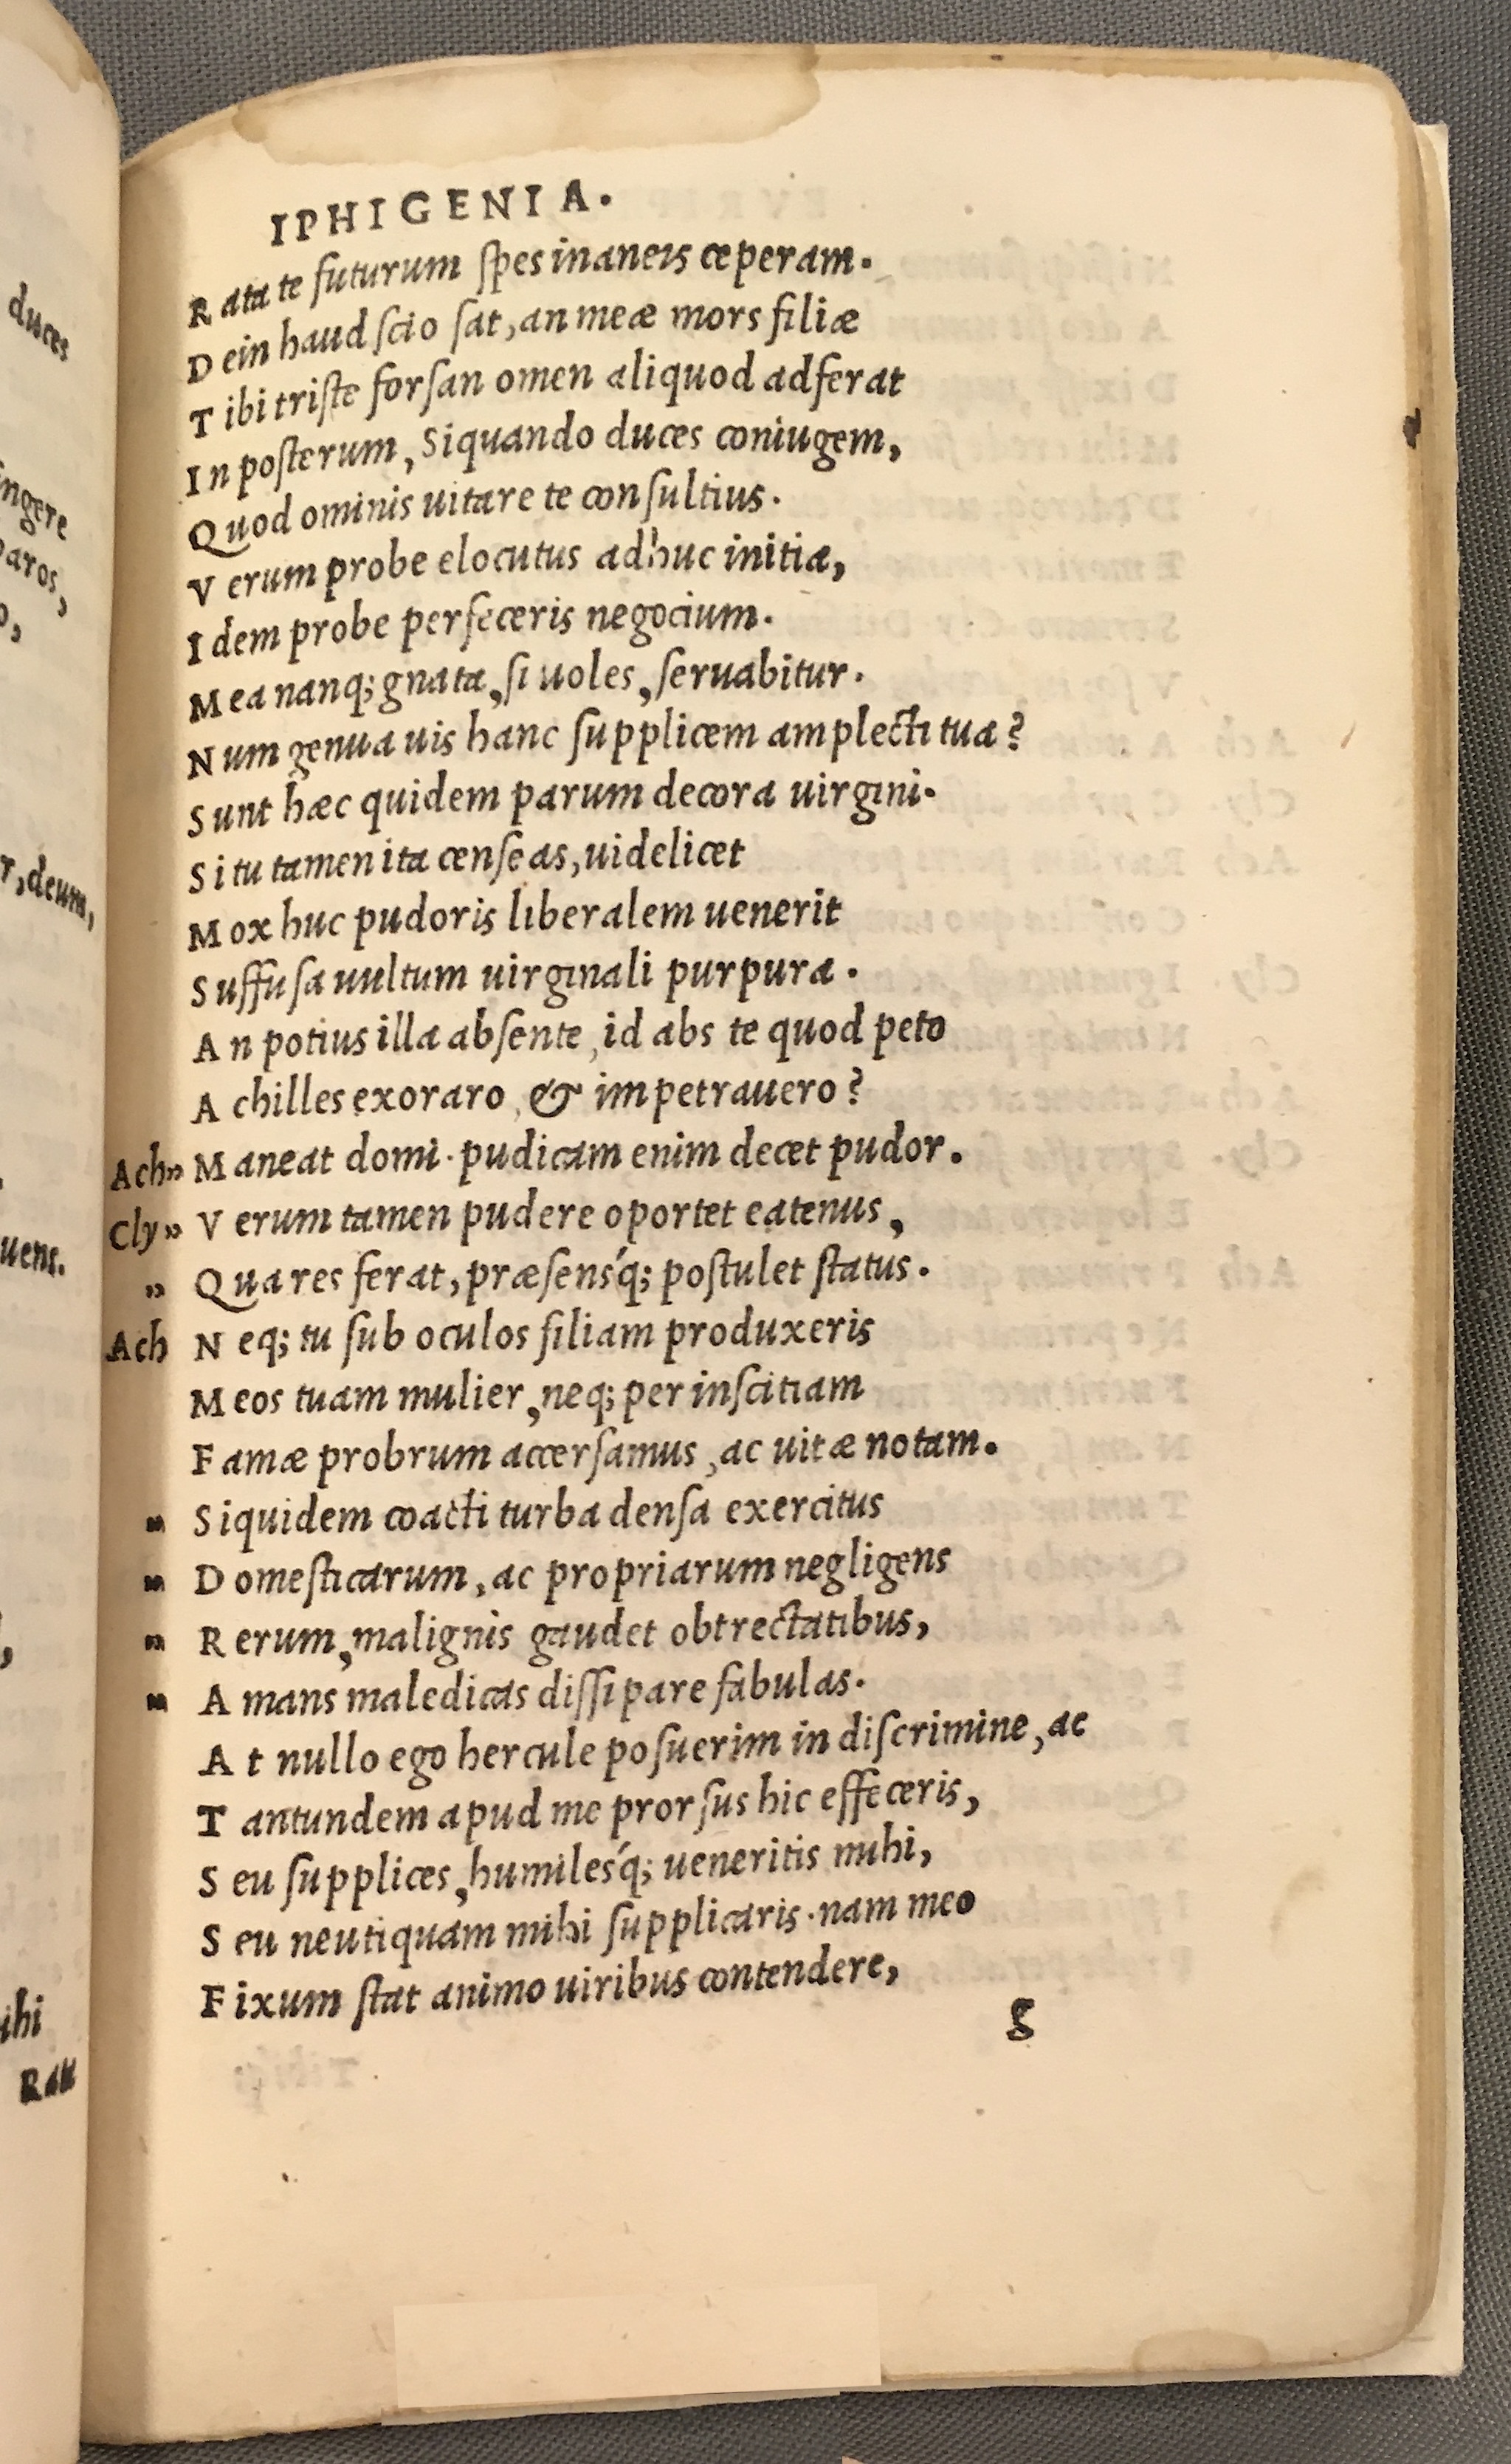 duces
ngere
paros,
o,
r, deum,
uens.
,
ihi
Rata
IPHIGENIA.
Rata te futurum spes inaneis ceperam.
Dein haud scio sat, an meæ mors filiæ
Tibi triste forsan omen aliquod adferat
In posterum, Siquando duces coniugem,
Quod ominis uitare te consultius.
Verum probe elocutus adhuc initia,
Idem probe perfeceris negocium.
Mea nanq; gnata, si uoles, seruabitur.
Num genua uis hanc supplicem amplecti tua?
Sunt hæc quidem parum decora uirgini.
Si tu tamen ita censeas, uidelicet
Mox huc pudoris liberalem uenerit
Suffusa uultum uirginali purpura.
An potius illa absente, id abs te quod peto
Achilles exoraro, & impetrauero?
Ach» Maneat domi. pudicam enim decet pudor.
Cly» Verum tamen pudere oportet eatenus,
» Qua res ferat, præsensq́; postulet status.
Ach Neq; tu sub oculos filiam produxeris
Meos tuam mulier, neq; per inscitiam
Famæ probrum accersamus, ac uitæ notam.
» Siquidem coacti turba densa exercitus
» Domesticarum, ac propriarum negligens
» Rerum, malignis gaudet obtrectatibus,
» Amans maledicas dissipare fabulas.
At nullo ego hercule posuerim in discrimine, ac
Tantundem apud me prorsus hic effeceris,
Seu supplices, humilesq́; ueneritis mihi,
Seu neutiquam mihi supplicaris. nam meo
Fixum stat animo uiribus contendere,
g